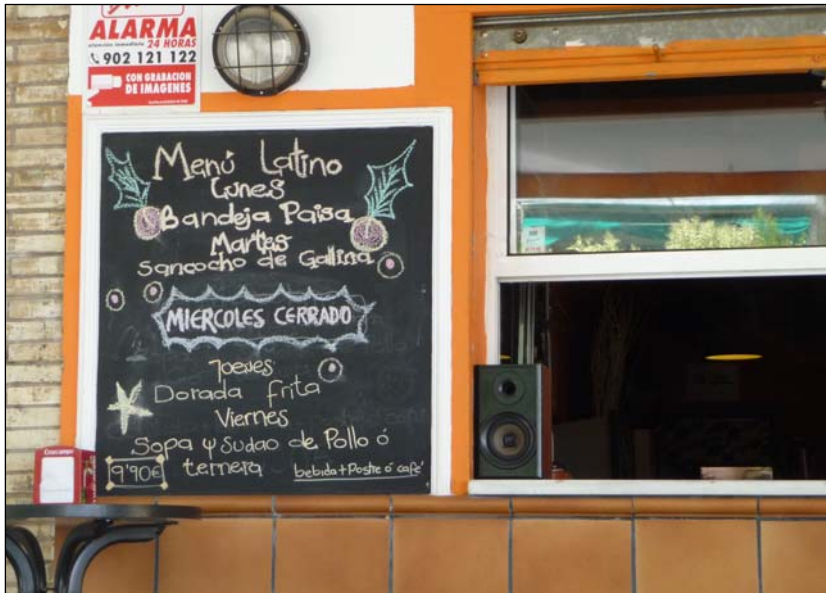 ALARMA
atencion inmediata 24 HORAS
902 121 122
CON GRABACION
DE IMAGENES
Menú Latino
Lunes
Bandeja Paisa
Martes
Sancocho de Gallina
MIERCOLES CERRADO
Jueves
Dorada frita
Viernes
Sopa y Sudao de Pollo ó
ternera
9'90€
bebida+Postre ó café
Cruzcampo